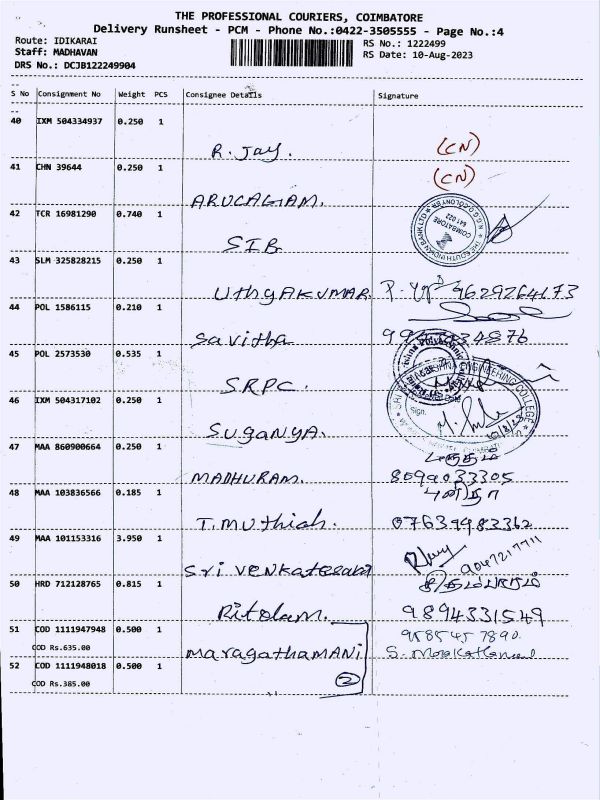 THE PROFESSIONAL COURIERS, COIMBATORE
Delivery Runsheet - PCM - Phone No.:0422-3505555 - Page No.:4
Route: IDIKARAI
RS No.: 1222499
Staff: MADHAVAN
RS Date: 10-Aug-2023
DRS No.: DCJB122249904
S No Consignment No Weight PCS Consignee Details Signature
40 IXM 504334937 0.250 1
R. Jay. (CN)
41 CHN 39644 0.250 1
(CN)
ARUCAGIAM.
42 TCR 16981290 0.740 1
SIB
THE SOUTH INDIAN BANK LTD
COIMBATORE
641 022
43 SLM 325828215 0.250 1
UthyAKUMAR. 9629264173
44 POL 1586115 0.210 1
Savitha
45 POL 2573530 0.535 1
SRPC.
46 IXM 504317102 0.250 1
ENGINEERING COLLEGE
Sign.
SUGANYA.
47 MAA 860900664 0.250 1
MADHURAM. 8099033305
48 MAA 103836566 0.185 1
T. Muthiah. 07639983362
49 MAA 101153316 3.950 1
9047217711
Sri VENKatesaba
50 HRD 712128765 0.815 1
Ritolam. 9894331549
51 COD 1111947948 0.500 1
9585457890
COD Rs.635.00
MaragathaMANi
52 COD 1111948018 0.500 1
COD Rs.385.00
2